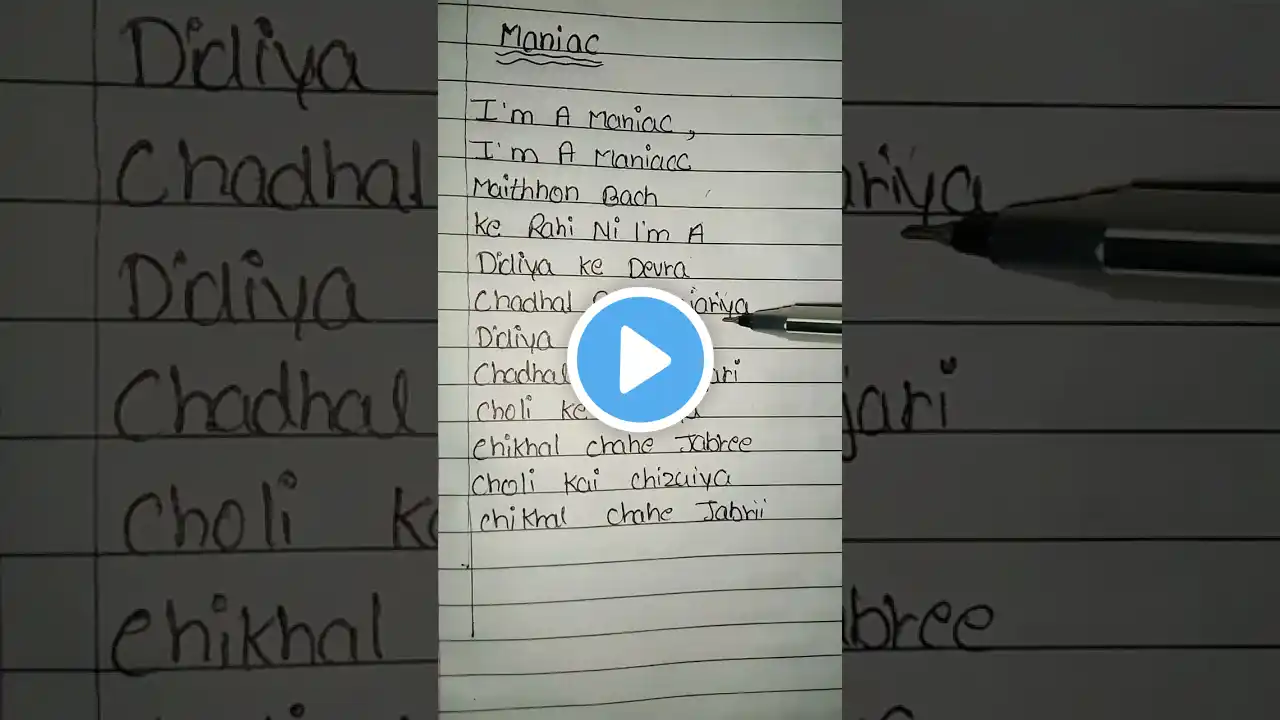 Maniac
I'm A Maniac,
I'm A Maniacc
Maithhon Bach
Ke Rahi Ni I'm A
Didiya ke Devra
Chadhal
Didiya
Chadhal
Choli ke
Chikhal chahe Jabree
Choli kai chizaiya
chikhal chahe Jabrii